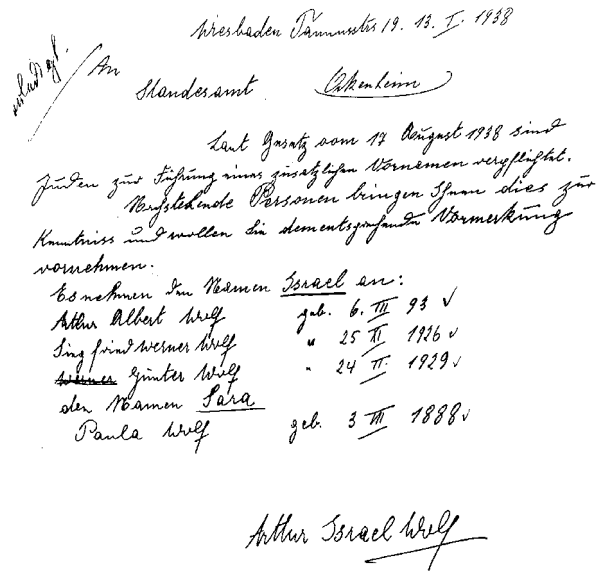 Wiesbaden Taunusstrs 19. 13. I. 1938
An
Standesamt Ockenheim
Laut Gesetz vom 17 August 1938 sind
Juden zur Führung eines zusätzlichen Vornamen verpflichtet.
Nachstehende Personen bringen Ihnen dies zur
Kenntniss und wollen Sie dementsprechende Vormerkung
vornehmen.
Es nehmen den Namen Israel an:
Arthur Albert Wolf geb. 6. III 93 ✓
Siegfried Werner Wolf " 25 XI 1926 ✓
Werner Günter Wolf " 24 II. 1929 ✓
den Namen Sara
Paula Wolf geb. 3 III 1888 ✓
Arthur Israel Wolf